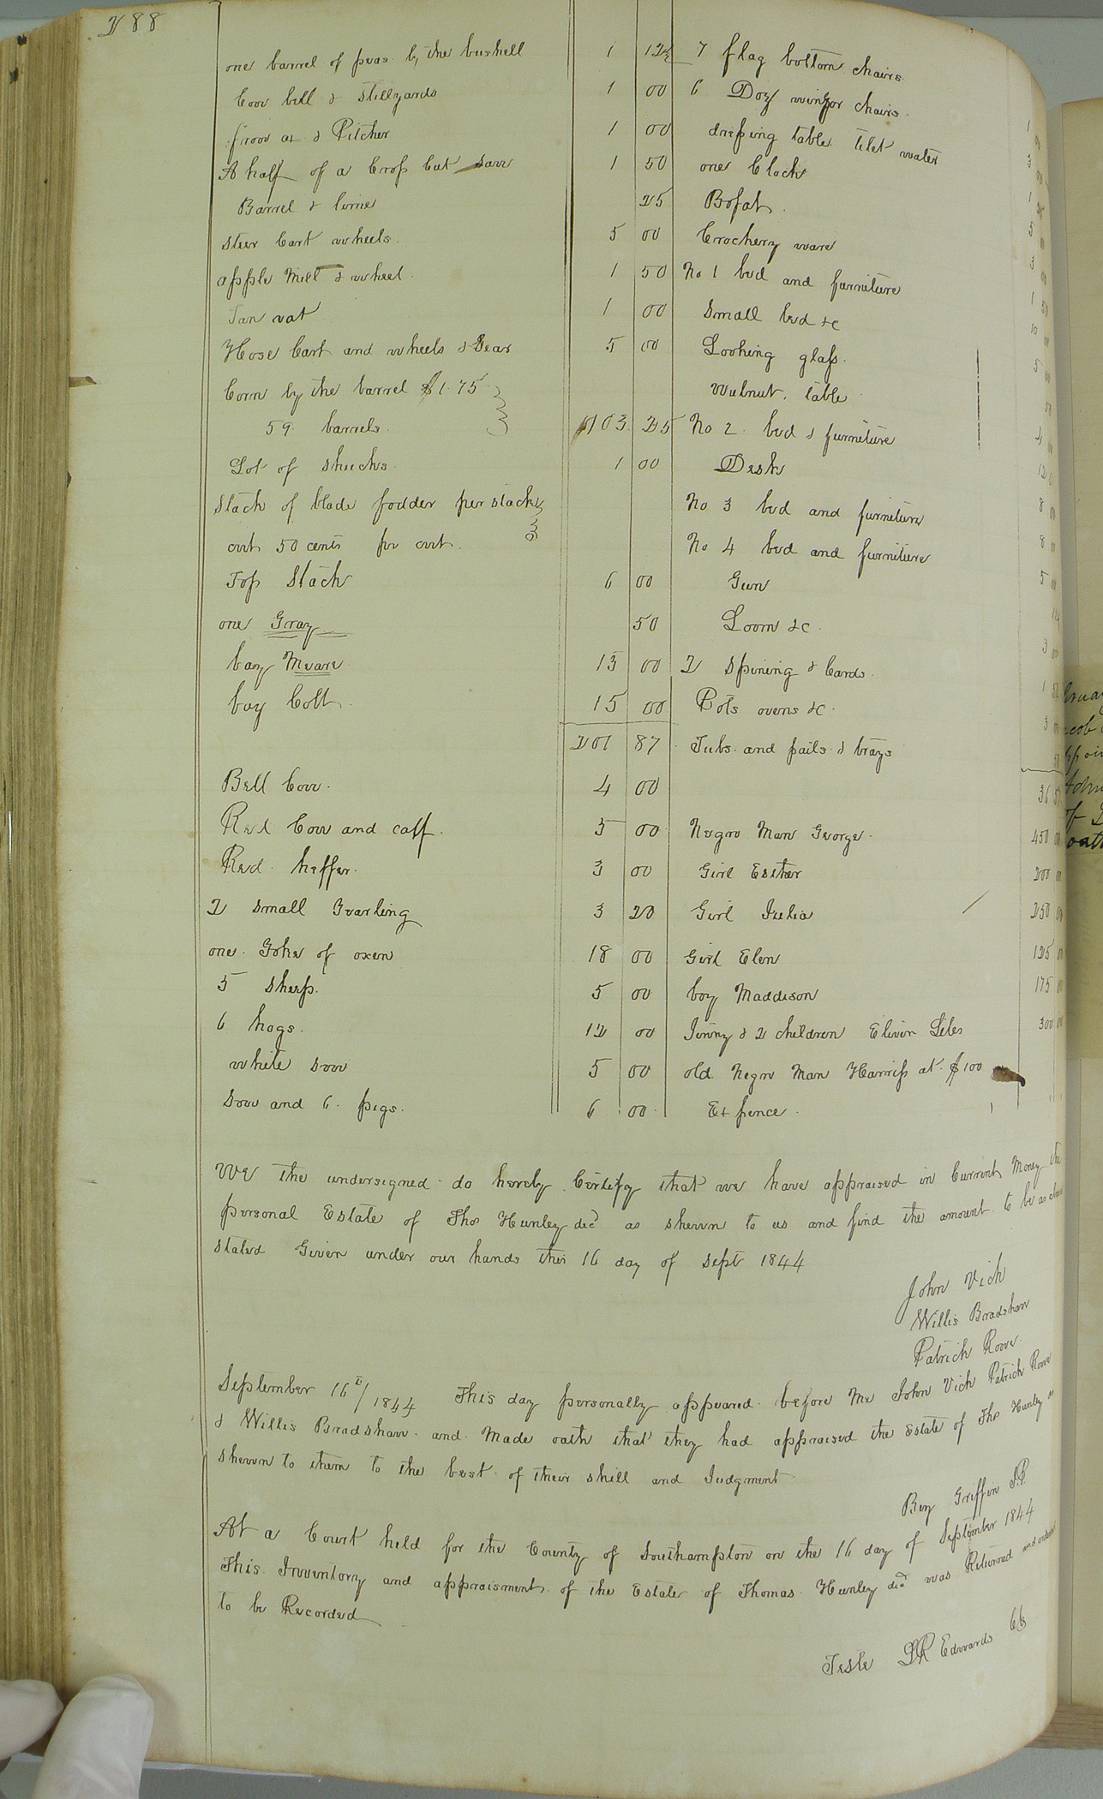 288
one barrel of peas by the bushell 1 12½
Cow bell & stillyards 1 00
frow ax & Pitcher 1 00
A half of a Crop Cut Saw 1 50
Barrel & lime 25
Steer Cart wheels 5 00
apple Mill & wheel 1 50
Tan vat 1 00
Hose Cart and wheels & Gear 5 00
Corn by the barrel $1.75
59 barrels 103 25
Lot of Shucks 1 00
Stack of blade fodder per stack
cwt 50 cents per cwt
Top Stack 6 00
one Gray 50
bay Meare 13 00
bay Colt 15 00
201 87
Bell Cow 4 00
Red Cow and calf 5 00
Red heffer 3 00
2 Small Yearling 3 20
one Yoke of oxen 18 00
5 Sheep 5 00
6 hogs 12 00
white Sow 5 00
Sow and 6 pigs 6 00
7 flag bottom chairs
6 Doz winzor chairs
dressing table
one Clock
Bofat
Crockery ware
No 1 bed and furniture
Small bed &c
Looking glass
Walnut table
No 2 bed & furniture
Desk
No 3 bed and furniture
No 4 bed and furniture
Gun
Loom &c
2 Spining & Cards
Pots ovens &c
Tubs and pails & trays
Negro Man George 450
Girl Esther 200
Girl Julia 250
Girl Elen 125
boy Maddison 175
Jinny & 2 children 300
old Negro Man Harriss at $100
Ex pence
We the undersigned do hereby Certify that we have appraised in Current Money the
personal Estate of Thos Hunley decd as shewn to us and find the amount to be as above
stated Given under our hands this 16 day of Sept 1844
John Vick
Willis Bradshaw
Patrick Rowe
September 16th/1844 This day personally appeared before Me John Vick Patrick Rowe
& Willis Bradshaw and Made oath that they had appraised the Estate of Thos Hunley as
shewn to them to the best of their skill and Judgment
Benj Griffin J.P.
At a Court held for the County of Southampton on the 16 day of September 1844
This Inventory and appraisment of the Estate of Thomas Hunley decd was Returned and ordered
to be Recorded
Teste LR Edwards CC